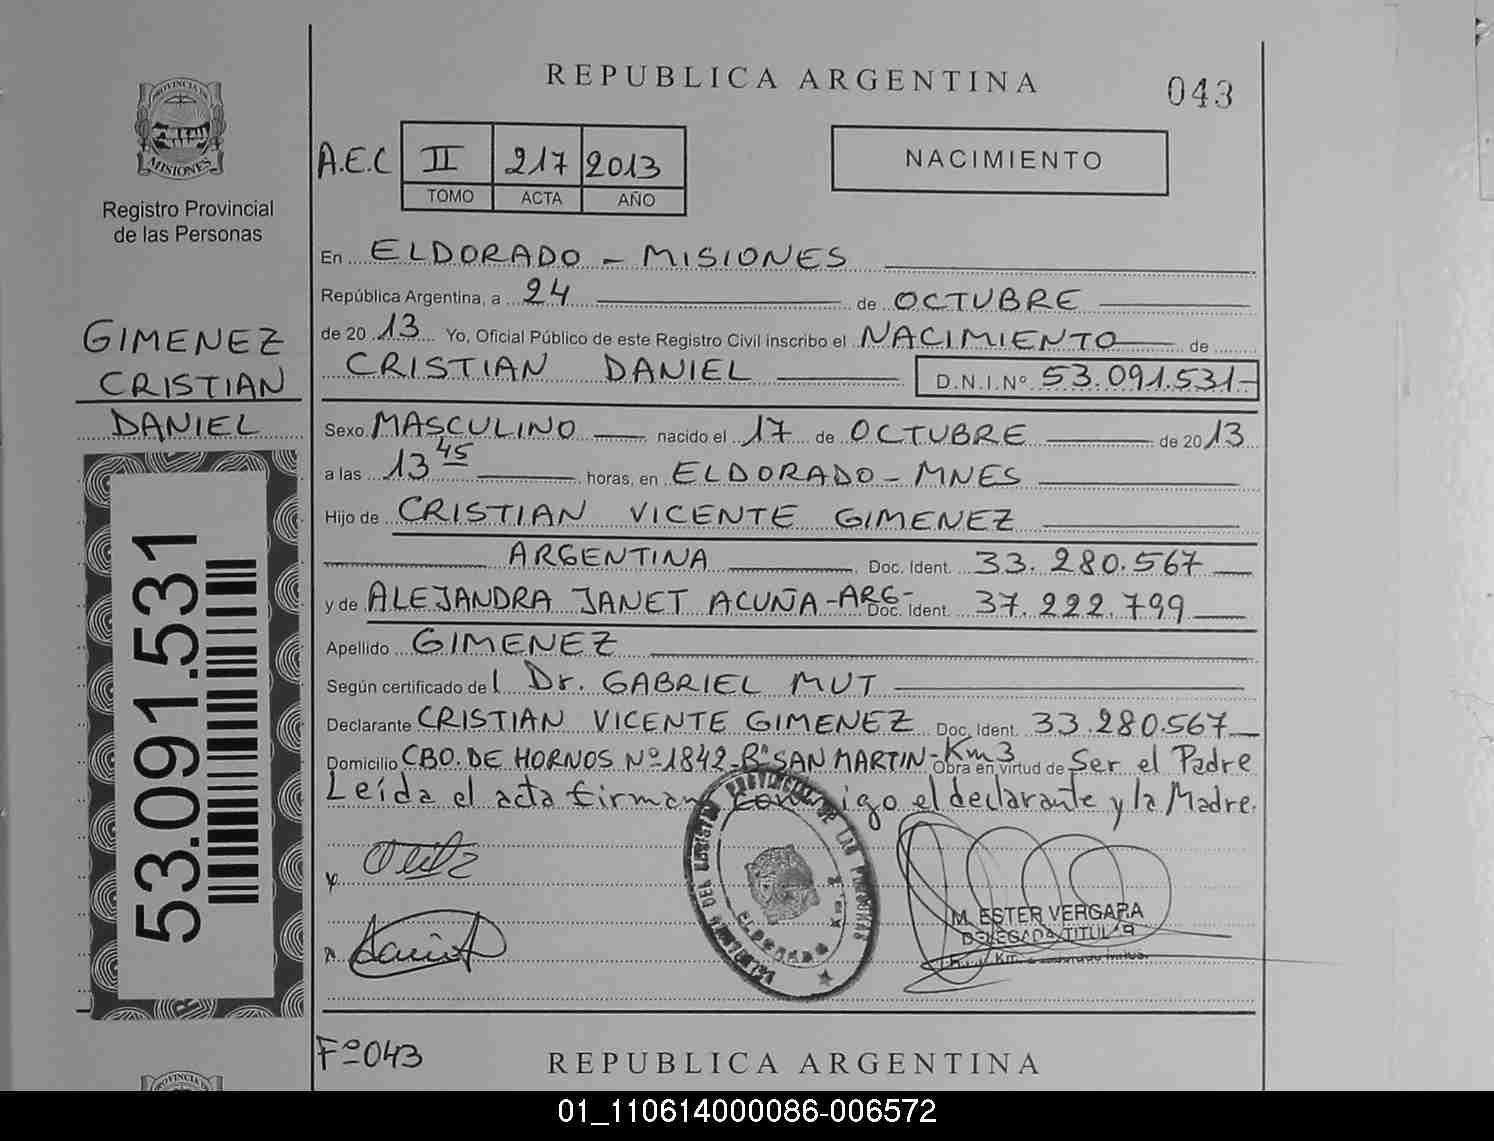 REPUBLICA ARGENTINA
043
PROVINCIA DE
MISIONES
Registro Provincial
de las Personas
A.E.C II 217 2013
TOMO ACTA AÑO
NACIMIENTO
En ELDORADO - MISIONES
República Argentina, a 24 de OCTUBRE
de 20 13 Yo, Oficial Público de este Registro Civil inscribo el NACIMIENTO de
CRISTIAN DANIEL D.N.I.Nº 53.091.531-
GIMENEZ
CRISTIAN
DANIEL
53.091.531
Sexo MASCULINO nacido el 17 de OCTUBRE de 20 13
a las 13 45 horas, en ELDORADO - MNES
Hijo de CRISTIAN VICENTE GIMENEZ
ARGENTINA Doc. Ident. 33.280.567
y de ALEJANDRA JANET ACUÑA-ARG- Doc. Ident. 37.222.799
Apellido GIMENEZ
Según certificado del Dr. GABRIEL MUT
Declarante CRISTIAN VICENTE GIMENEZ Doc. Ident. 33.280.567
Domicilio CBO. DE HORNOS Nº 1842-Bº SAN MARTIN-Km3 Obra en virtud de Ser el Padre
Leída el acta firman conmigo el declarante y la Madre.
M. ESTER VERGARA
DELEGADA TITULAR
ELDORADO
Fº 043
REPUBLICA ARGENTINA
PROVINCIA
01_110614000086-006572